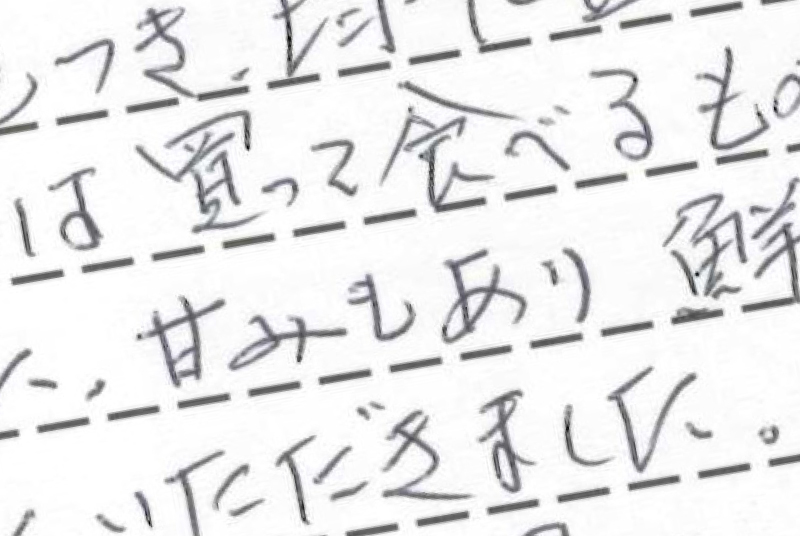 つき、
は買って食べるもの
、甘みもあり 鮮
いただきました。